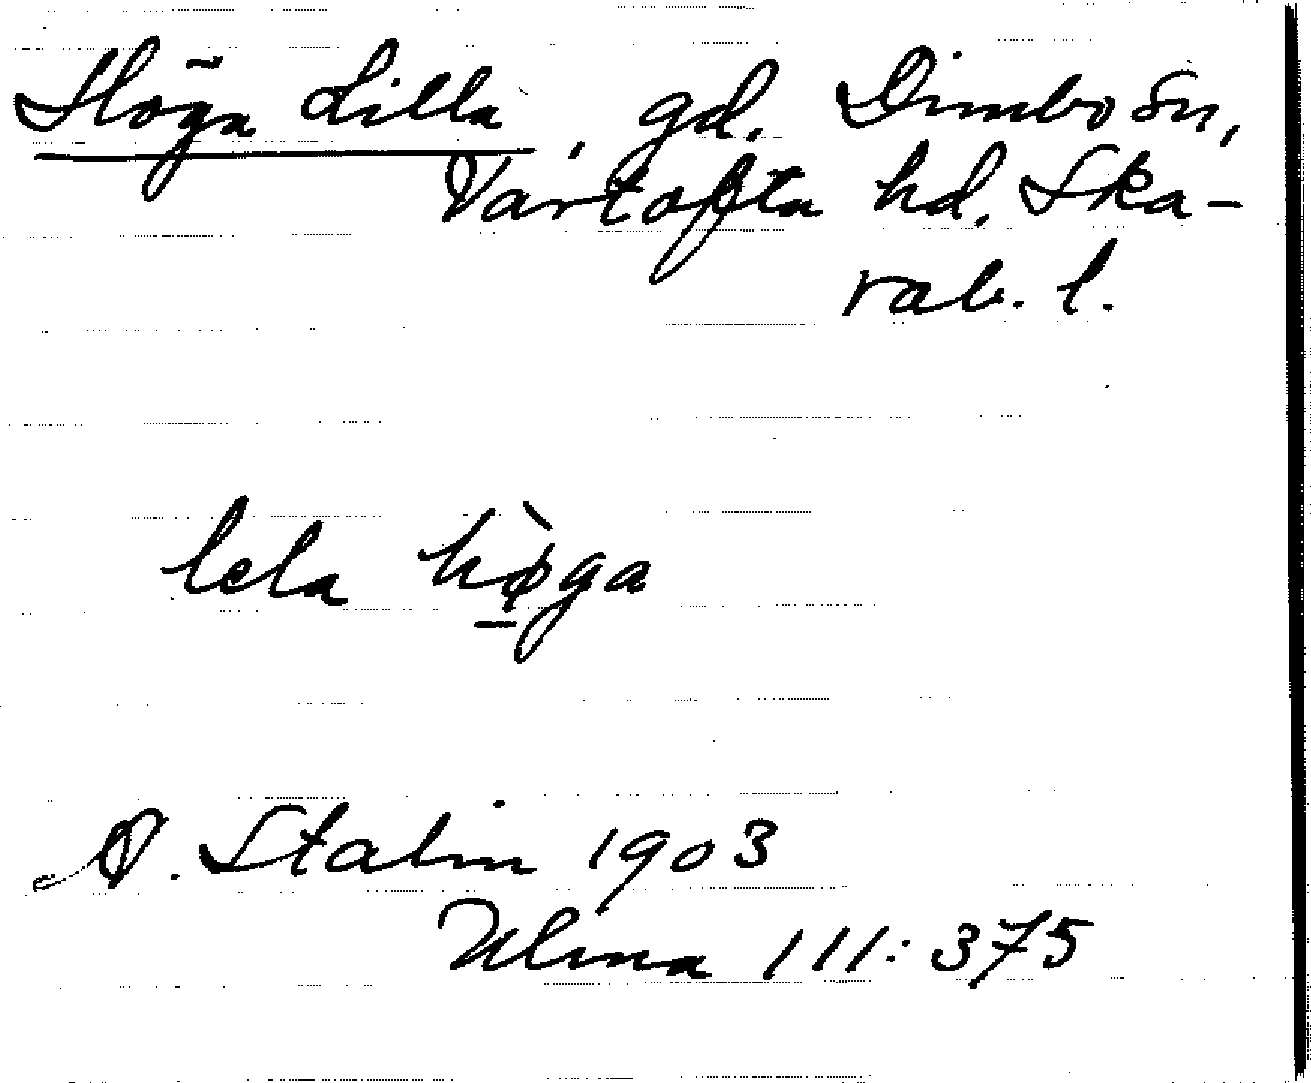 Höga Lilla, gd. Dimbo sn,
Vartofta hd. Ska-
rab. l.
lela hø̀ga
A. Stalin 1903
Ulma 111:375